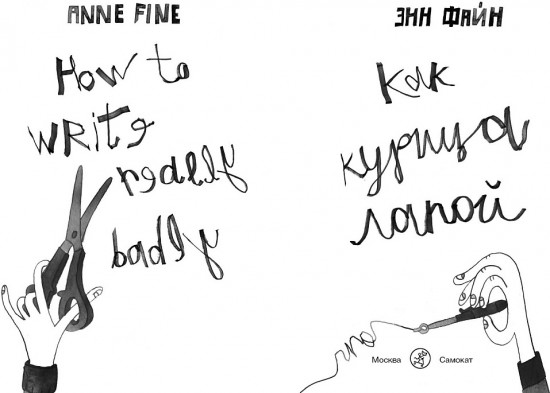 ANNE FINE
How to
WRITE
really
badly
ЭНН ФАЙН
Как
курица
лапой
Москва Самокат